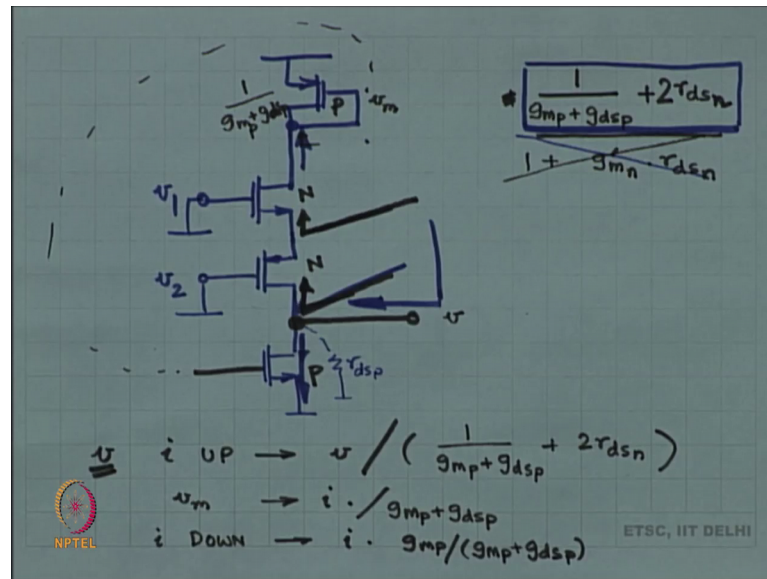 1 / (gmp + gdsp)
P
vm
1 / (gmp + gdsp) + 2rdsn
1 + gmn · rdsn
v1
N
v2
N
v
P
rdsp
v i UP → v / ( 1 / (gmp + gdsp) + 2rdsn )
vm → i · / gmp + gdsp
i DOWN → i · gmp/(gmp+gdsp)
NPTEL
ETSC, IIT DELHI